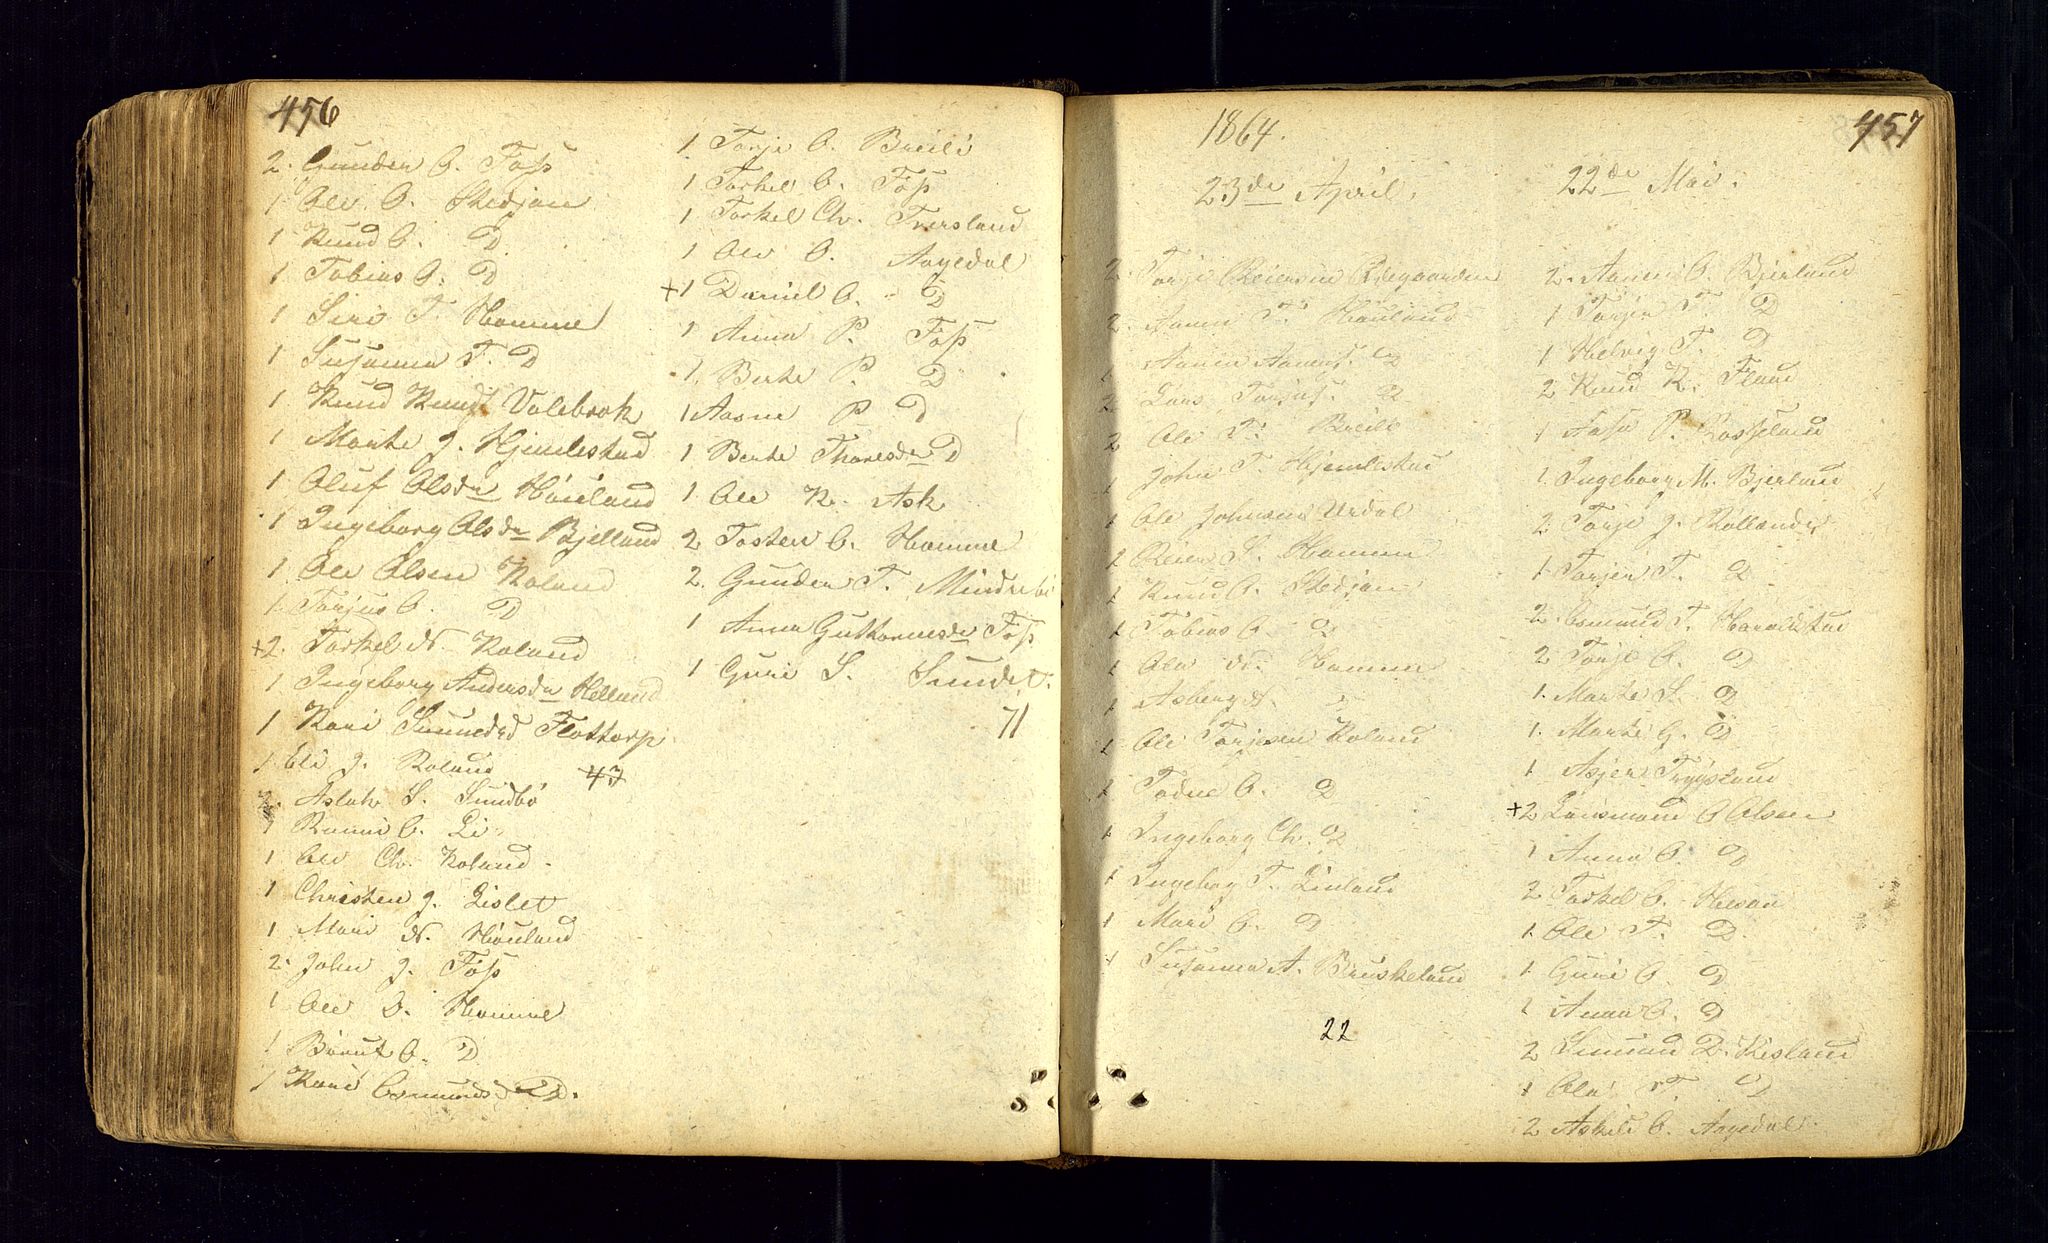 456
2. Gunder O. Foss
1 Ole O. Stedjan
1 Knud O. D
1 Tobias O. D
1 Siri T. Homme
1 Susanna T. D
1 Knud Knuds Valebrok
1 Marte J. Hjemlestad
1 Oluf Olsdr Høiland
1 Ingeborg Olsdr Bjelland
1 Ole Olsen Roland
1 Torjus O. D
+2. Torkel N. Roland
1 Ingeborg Andersdr Helland
1 Kari Simonsd Flottorp
1 Eli J. Roland 47
2. Aslak S. Sundbø
1 Ronni O. Li
1 Ole Ch. Roland.
1 Christen J. Lislet
1 Mari N. Høiland
2. John J. Foss
1 Ole D. Homme
1 Bærut O. D
1 Kari Osmundsd D.
1 Torje O. Breili
1 Torkel O. Foss
1 Torkel Ch. Tveisland
1 Ole O. Aagedal
+1 Daniel O. D
1 Anna P. Foss
1 Berte P. D
1 Aasne P. D
1 Berte Thoresdr D
1 Ole K. Ask
2 Tosten O. Homme
2. Gunder T. Mindrebø
1 Anna Guttormsdr Foss
1 Guri S. Sundet.
71
457
1864.
23de April.
2. Torje Reiersen Øvegaarden
2. Aanen T. Høiland
1 Aanen Aanens. D
2 Lars Torjus. D
2 Ole T. Breili
1 John T. Hjemlestad
1 Ole Johnsen Urdal
1 Reier S. Homme
1 Knud O. Stedjan
1 Tobias O. D
1 Ole N. Homme
1 Asberg N. D
1 Ole Torjesen Roland
1 Todne O. D
1 Ingeborg Ch. D
1 Ingebog T. Linland
1 Mari O. D
1 Susanna A. Bruskeland
22
22de Mai.
2. Aanen O. Bjerland
1 Torjer T. D
1 Helvig T. D
2 Knud K. Fland
1 Aasa P. Rosseland
1. Ingeborg M. Bjerland
2. Torje J. Røllandsv
1 Torjer T. D
2. Osmund T. Haraldstad
2 Torje O. D
1. Marte S. D
1. Marte G. D
1 Asjer Trygsland
+2 Lensmand O Olsen
1 Anna O. D
2 Torkel O. Hesaa
1. Ole T. D
1 Guri O. D
1 Anna O. D
2 Simund D. Kisland
1 Ola T. D
2 Askild O. Aagedal